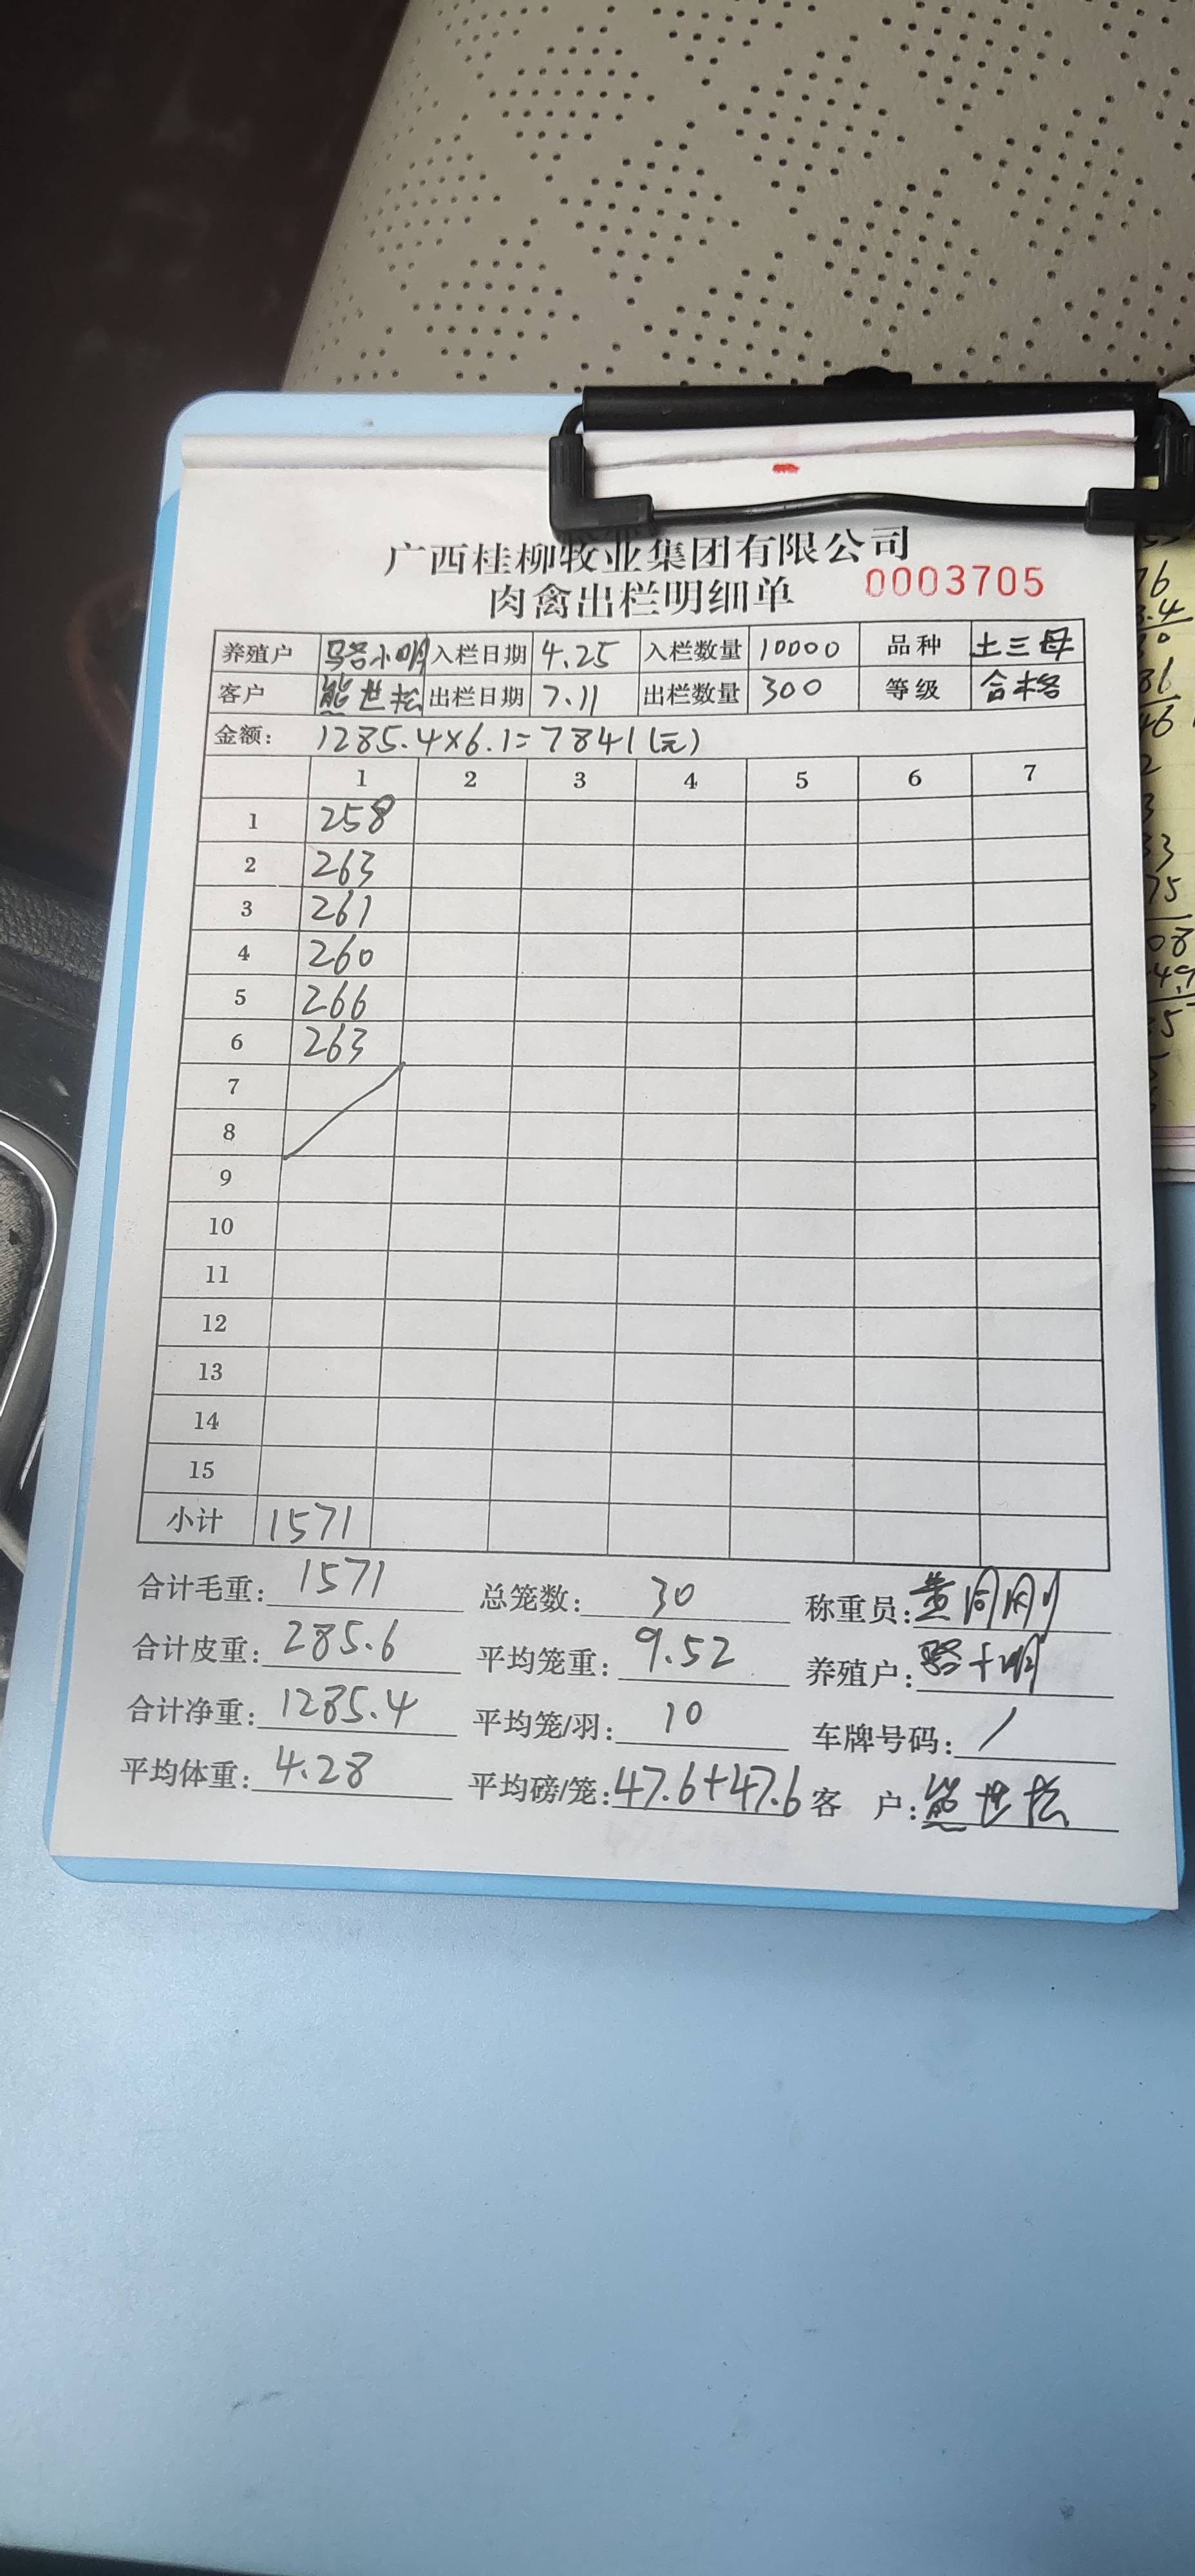 广西桂柳牧业集团有限公司
肉禽出栏明细单 0003705
养殖户 骆小明 入栏日期 4.25 入栏数量 10000 品种 土三母
客户 熊世松 出栏日期 7.11 出栏数量 300 等级 合格
金额: 1285.4×6.1=7841(元)
1 2 3 4 5 6 7
1 258
2 263
3 261
4 260
5 266
6 263
7
8
9
10
11
12
13
14
15
小计 1571
合计毛重: 1571 总笼数: 30 称重员: 黄
合计皮重: 285.6 平均笼重: 9.52 养殖户: 骆小明
合计净重: 1285.4 平均笼/羽: 10 车牌号码: /
平均体重: 4.28 平均磅/笼: 47.6+47.6 客 户: 熊世松